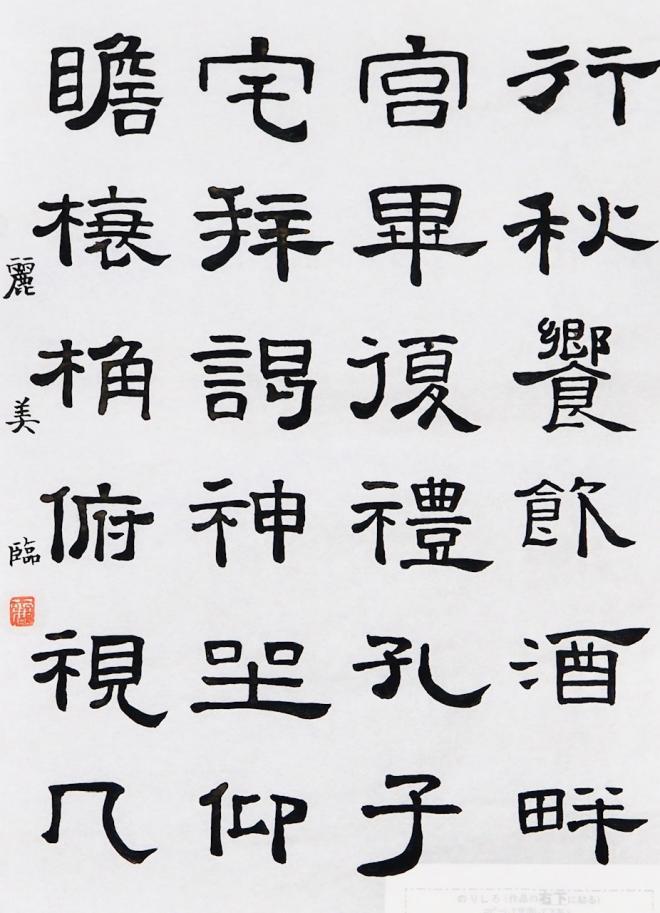 行秋饗飲酒畔
宮畢復禮孔子
宅拜謁神坐仰
瞻榱桷俯視几
麗美臨
のりしろ(作品の右下に貼る)